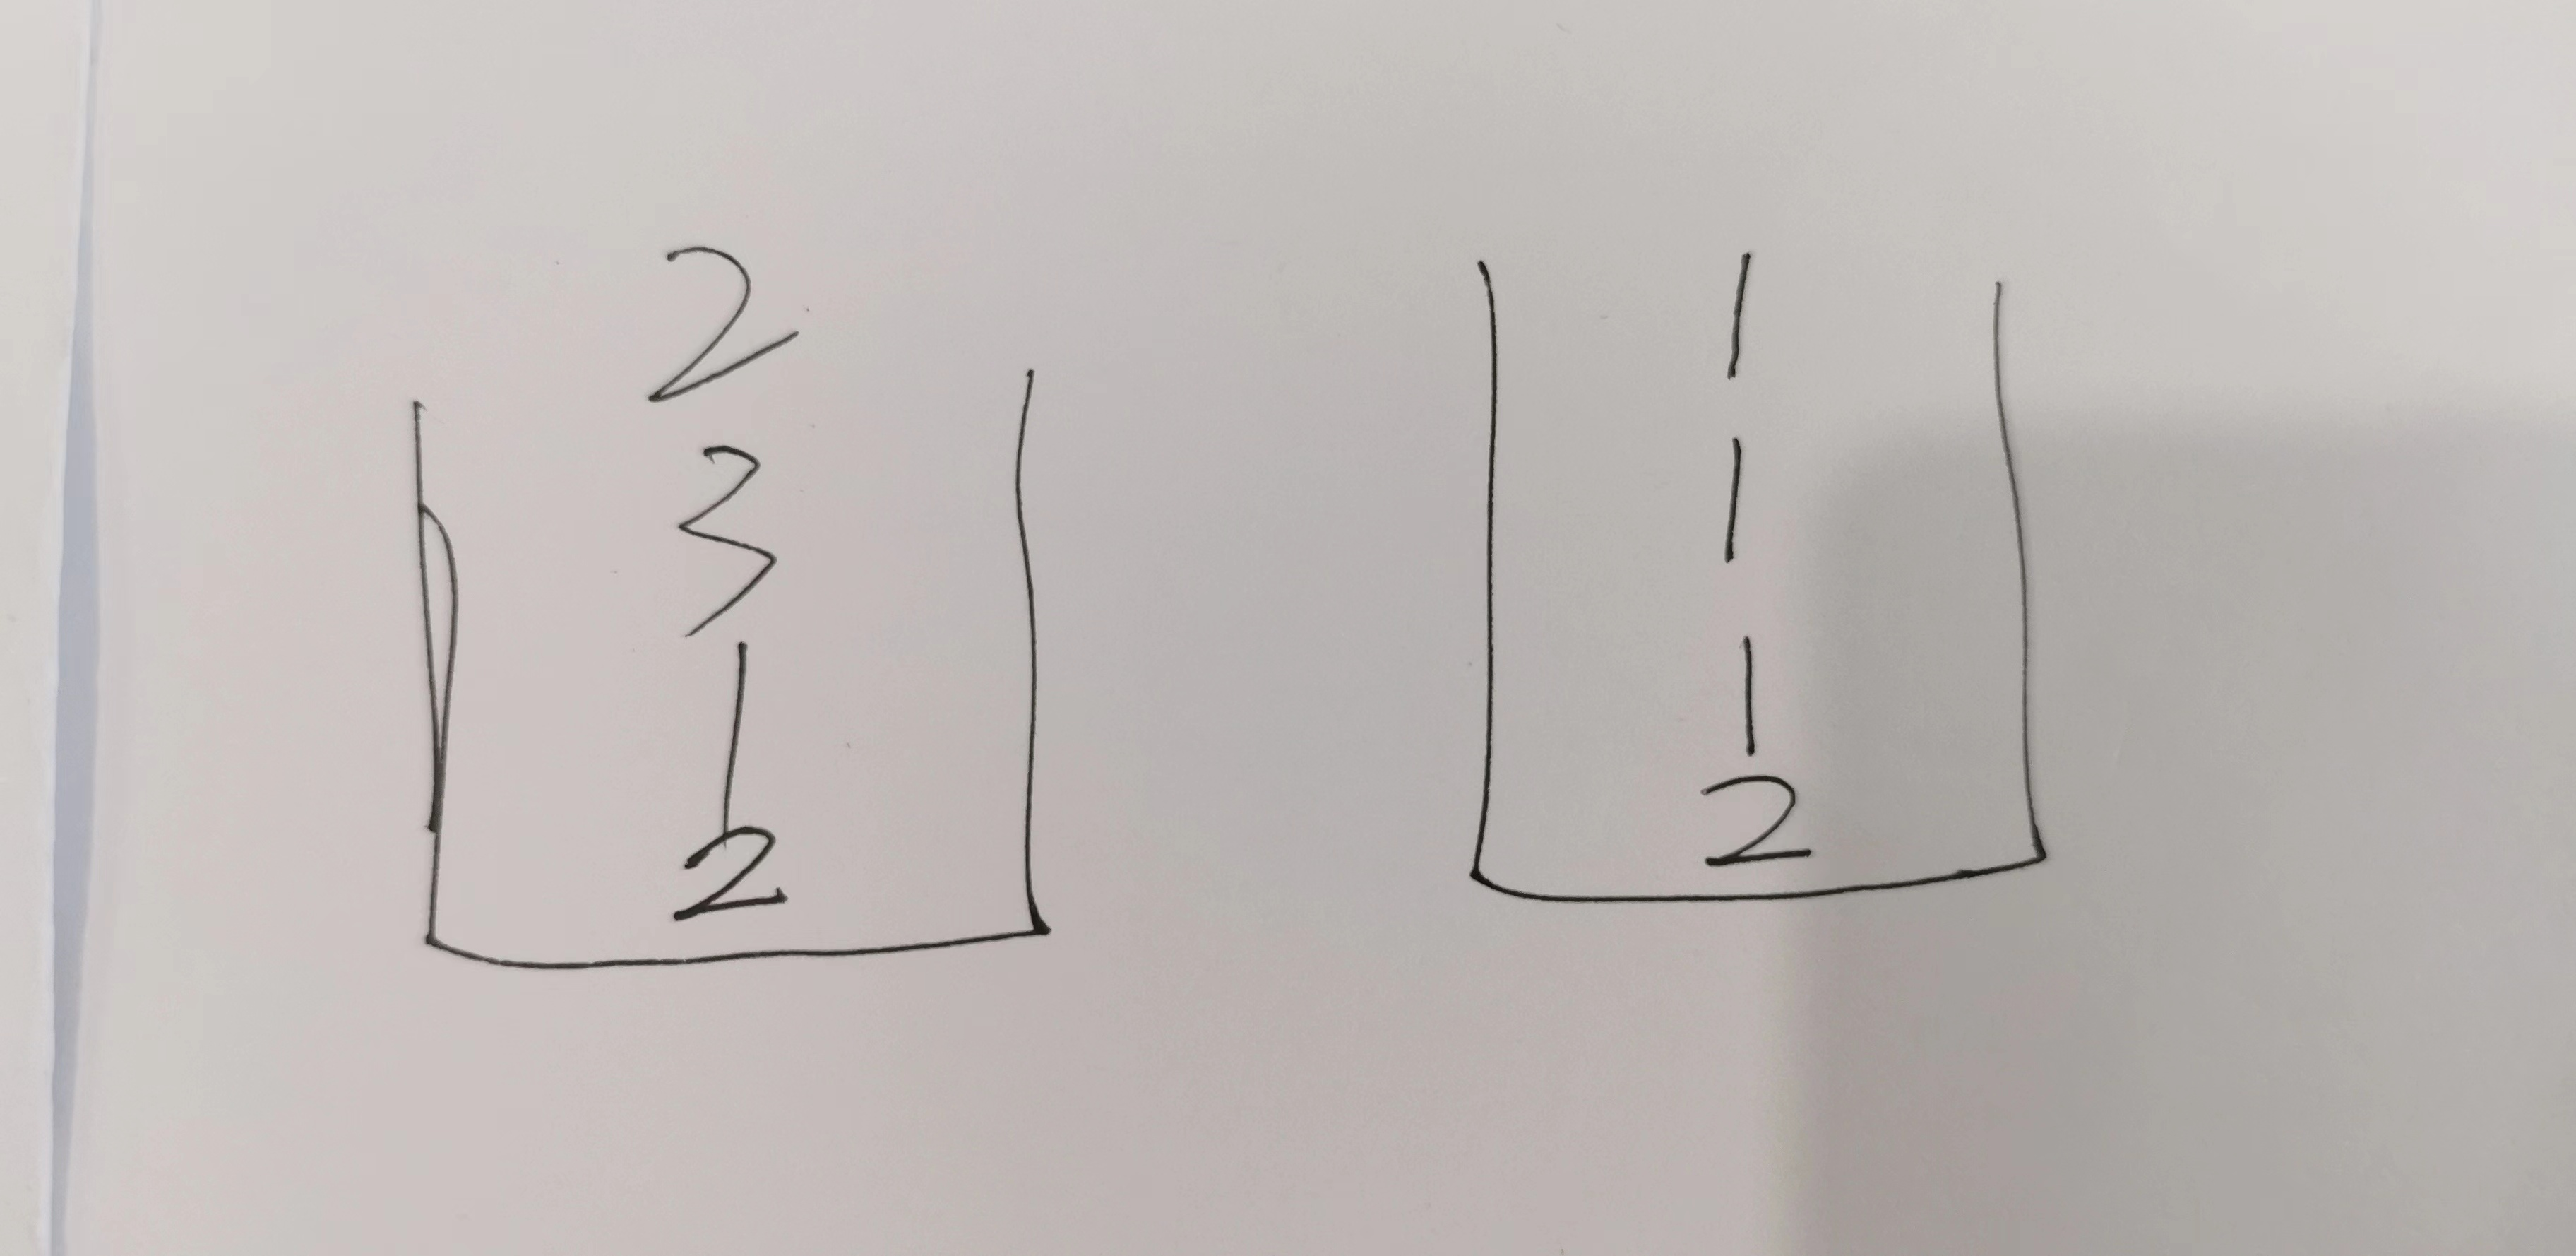 2
3
1
2
1
1
1
2